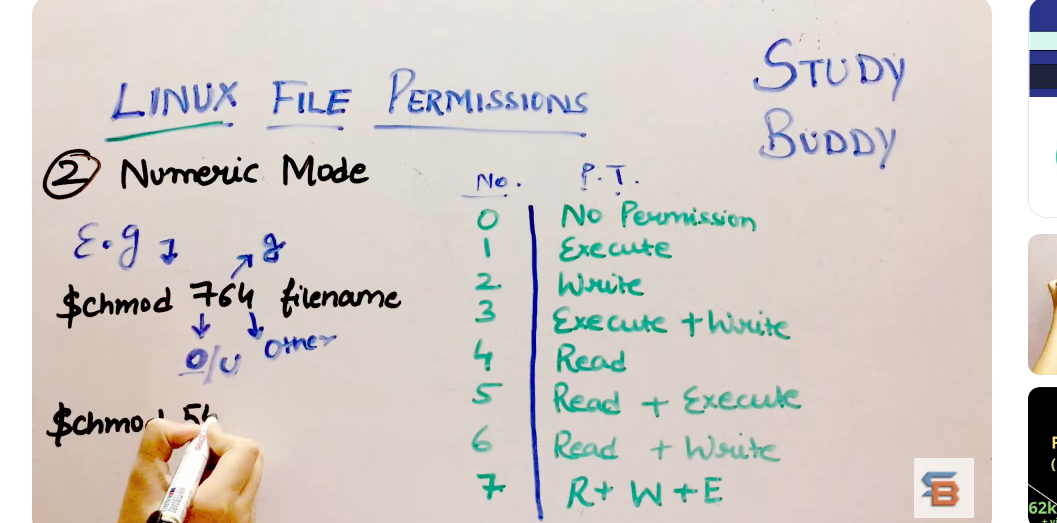 STUDY
BUDDY
LINUX FILE PERMISSIONS
2 Numeric Mode
E.g
g
$chmod 764 filename
O/U Other
$chmod 54
No. P.T.
0 No Permission
1 Execute
2. Write
3 Execute + Write
4 Read
5 Read + Execute
6 Read + Write
7 R + W + E
SB
62k